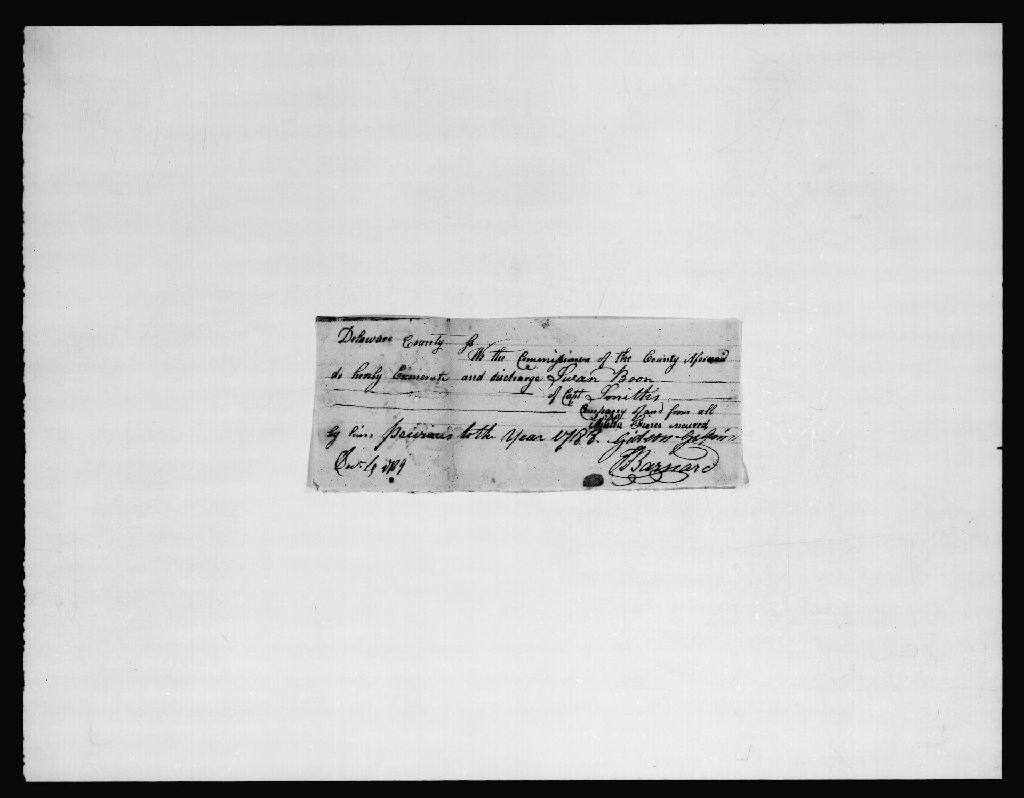 Delaware County Ss
We the Commissioners of the County aforesaid
do hereby Exonerate and discharge Swan Boon
of Capt Smiths
Company of and from all
Militia Fines incured
by him previous to the Year 1783. Gideon
Barnard
1789